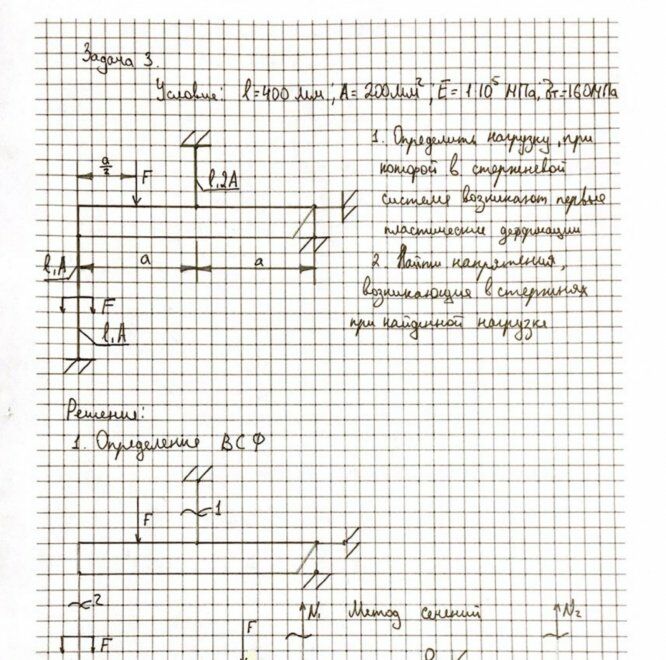 Задача 3.
Условие: l=400 мм; A=200мм²; E=1·10⁵ МПа, σт=160МПа
1. Определить нагрузку, при
которой в стержневой
системе возникают первые
пластические деформации
2. Найти напряжения,
возникающие в стержнях
при найденной нагрузке
a/2
F
l,2A
a
a
l,A
F
l,A
Решение:
1. Определение ВСФ
1
F
2
F
F
N₁
Метод сечений
N₂